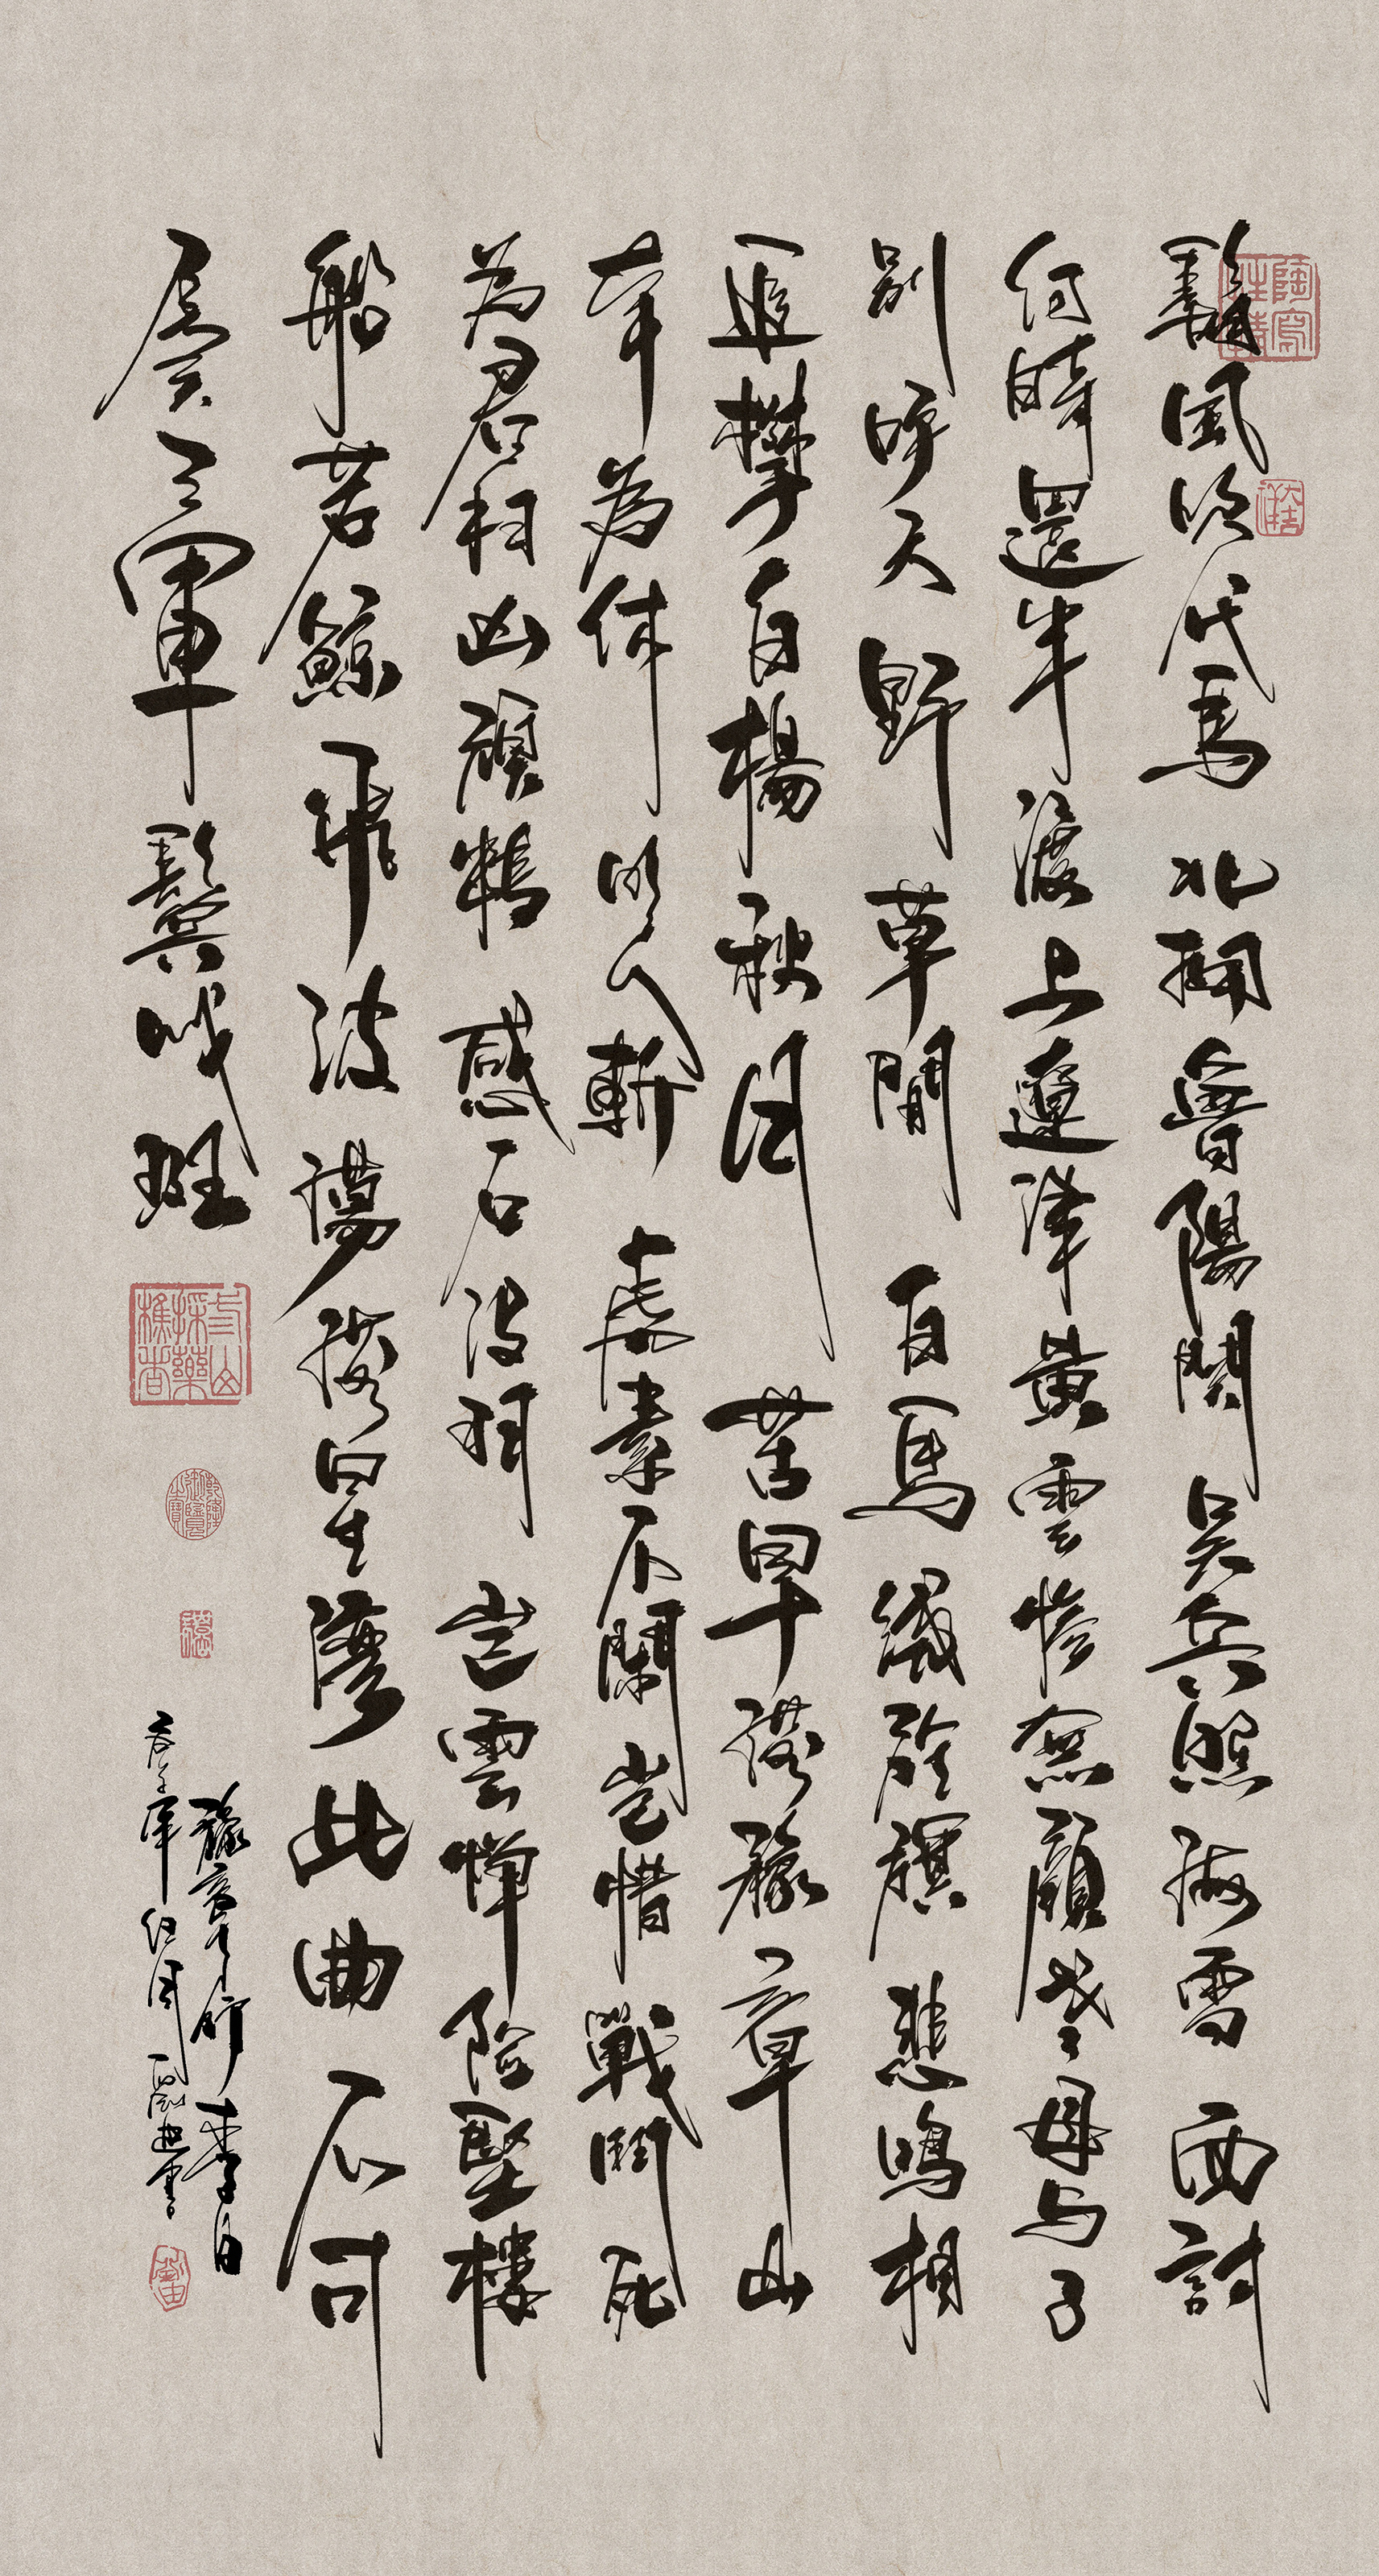 鬍風吹代馬北擁魯陽關吳兵照海雪西討
何時還半渡上遼津黃雲慘無顏老母与子
別呼天野草間白馬繞旌旗悲鳴相
追攀白楊秋月苦早落豫章山
本為休明人斬虜素不閑豈惜戰鬥死
為君掃凶頑精感石沒羽豈雲憚險艱樓
船若鯨飛波蕩落星灣此曲不可
奏三軍鬢成斑
豫章行李白
陶寫性情
大吉祥